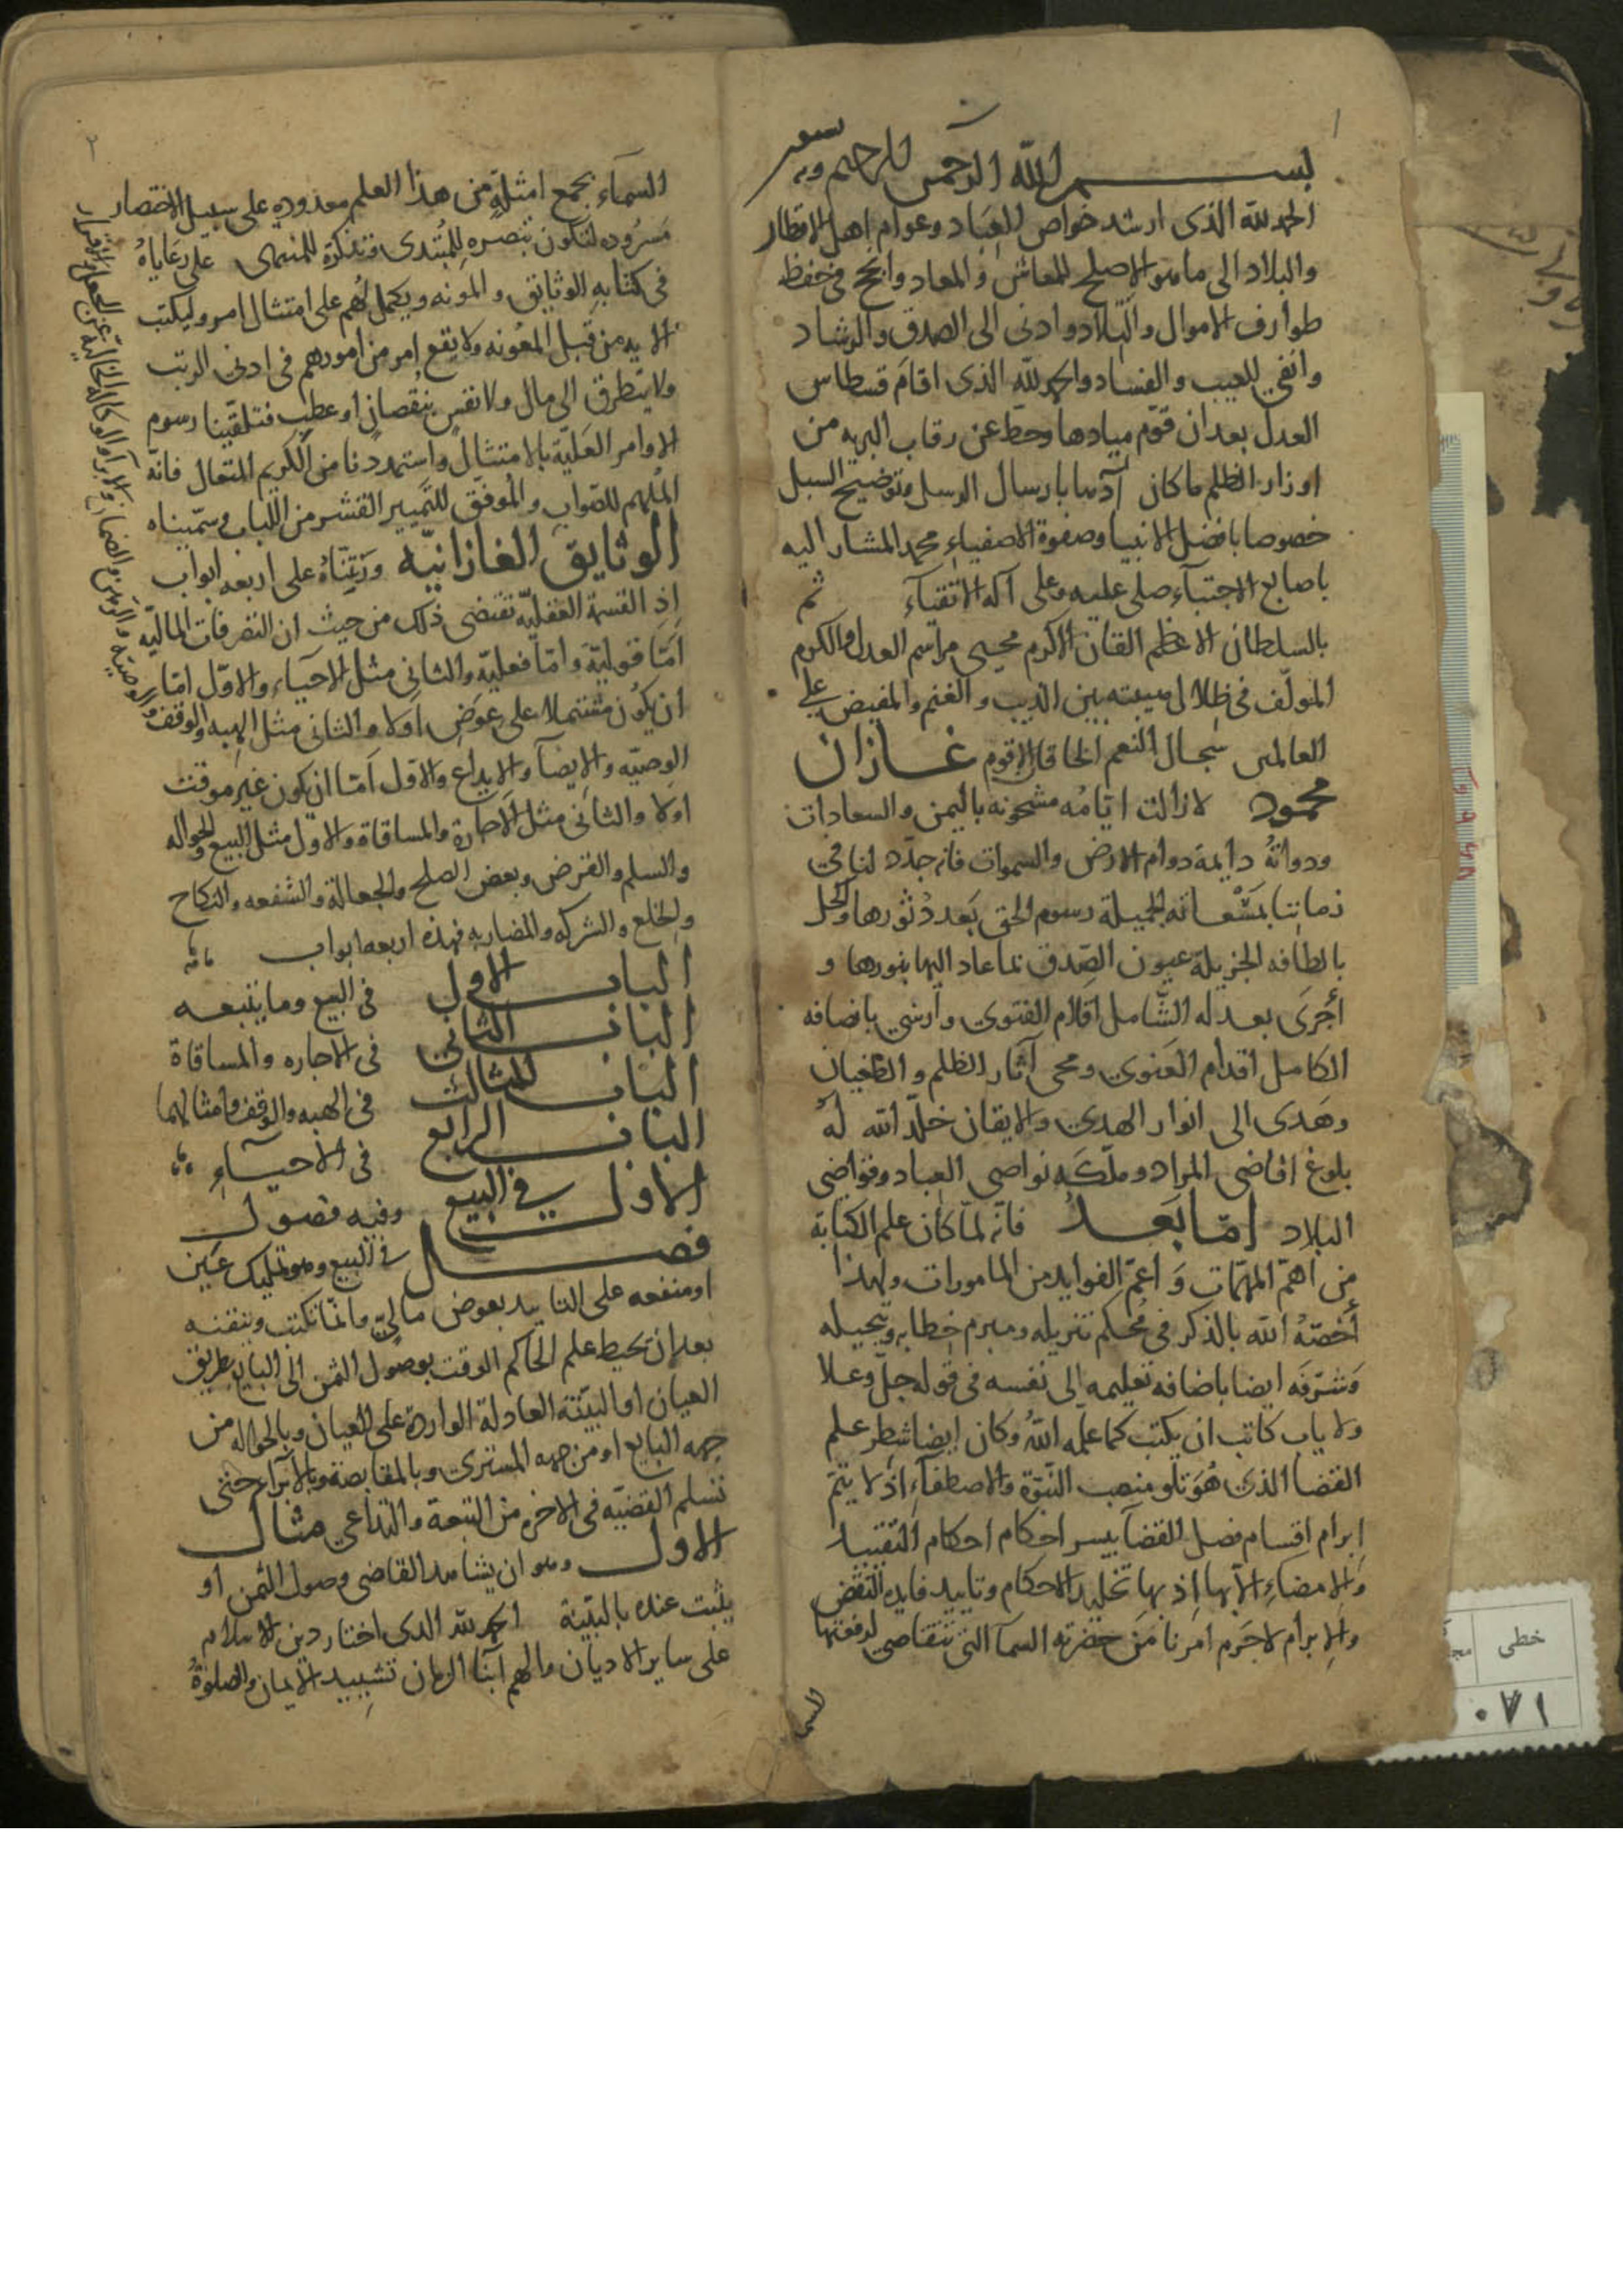 ١
بسم الله الرحمن الرحيم وبه
الحمد لله الذى ارشد خواص العباد وعوام اهل الاقطار
والبلاد الى ما هو الاصلح للمعاش والمعاد وانجح فى حفظ
طوارف الاموال والتلاد وادنى الى الصدق والرشاد
وانفى للعيب والفساد والحمد لله الذى اقام قسطاس
العدل بعد ان قوّم ميادها وحط عن رقاب البريه من
اوزار الظلم ما كان آدها بارسال الرسل وتوضيح السبل
خصوصا بافضل الانبيا وصفوة الاصفياء محمد المشار اليه
باصابع الاجتباء صلى عليه وعلى آله الاتقياء ثم
بالسلطان الاعظم القان الاكرم محيى مراسم العدل والكرم
المولّف فى ظلال هيبته بين الذيب والغنم والمفيض على
العالمين سجال النعم الخاقان الاقوم غازان
محمود لا زالت ايّامه مشحونه باليمن والسعادات
ودولته دايمة دوام الارض والسموات فانه جدّد لنا فى
زماننا بمسعاته الجميلة رسوم الحق بعد دثورها وكحل
بالطافه الجزيلة عيون الصّدق فما عاد اليها بنورها و
أجرى بعدله الشّامل اقلام الفتوى وأرسى بانصافه
الكامل اقدام العنوى ومحى آثار الظلم والطغيان
وهدى الى انوار الهدى والايقان خلّد الله له
بلوغ اقاضى المراد وملّكه نواصى العباد وقواضى
البلاد امّا بعد فانه لمّا كان علم الكتابة
من اهمّ المهمّات و اعمّ الفوايد من المامورات ولهذا
أخصّه الله بالذكر فى محكم تنزيله ومبرم خطابه وتبجيله
وشرّفه ايضا باضافه تعليمه الى نفسه فى قوله جلّ وعلا
ولا ياب كاتب ان يكتب كما علّمه الله وكان ايضا شطر علم
القضا الذى هو تلو منصب النّبوّة والاصطفاء اذ لا يتمّ
إبرام اقسام فصل القضا بيسر احكام احكام التقييد
والامضاء الاّ بها اذ بها تخليد الاحكام وتاييد فايده النّقض
والابرام لا جرم امرنا من حضرته السما التى تتقاصى لرفعتها
السما
٢
السماء بجمع امثلةٍ من هذا العلم معدوده على سبيل الاختصار
مسروده لتكون تبصره للمبتدى وتذكرة للمنتهى على رعاياه
فى كتابه الوثايق والمونه ويكمل لهم على امتثال امر وليكتب
الا يد من قبل المعونه ولا يقع امر من امورهم فى ادنى الرتب
ولا يتطرق الى مال ولا نفس بنقصان او عطب فتلقّينا رسوم
الاوامر العليّة بالامتثال واستمددنا من الكريم المتعال فانّه
الملهم للصّواب والموفّق للتمييز القشر من اللباب وسمّيناه
الوثايق الغازانيّه ورتّبناه على اربعه ابواب
إذ القسمة العقليّه تقتضى ذلك من حيث ان التصرفات الماليّه
امّا قوليّة وامّا فعليّه والثانى مثل الاحياء والاوّل امّا
ان يكون مشتملا على عوض اولا والثانى مثل الهبه والوقف و
الوصيّه والايصاء والايداع والاوّل امّا ان يكون غير موقت
اولا والثانى مثل الاجارة والمساقاة والاول مثل البيع والحواله
والسلم والقرض وبعض الصلح والجعالة والشفعه والنكاح
والخلع والشركه والمضاربه فهذه اربعه ابواب
الباب الاول فى البيع وما يتبعه
الباب الثانى فى الاجاره والمساقاة
الباب الثالث فى الهبه والوقف وامثالهما
الباب الرابع فى الأحياء
الاول فى البيع وفيه فصول
فصل فى البيع وهو تمليك عين
او منفعه على التاييد بعوض مالىّ وانمّا نكتب وبنقنه
بعد ان يحيط علم الحاكم الوقت بوصول الثمن الى البايع بطريق
العيان او البيّنة العادلة الوارده على العيان وبالحواله من
جهه البايع او من جهه المشترى وبالمقابضة وبالابراء حتى
تسلم القضيّه فى الاخره من التبعة والتداعى مثال
الاول وهو ان يشاهد القاضى وصول الثمن او
يثبت عنده بالبيّنة الحمد لله الذى اختار دين الاسلام
على ساير الاديان والهم ابنا الزمان تشييد الايمان والصلوة
خطى
٠٧١